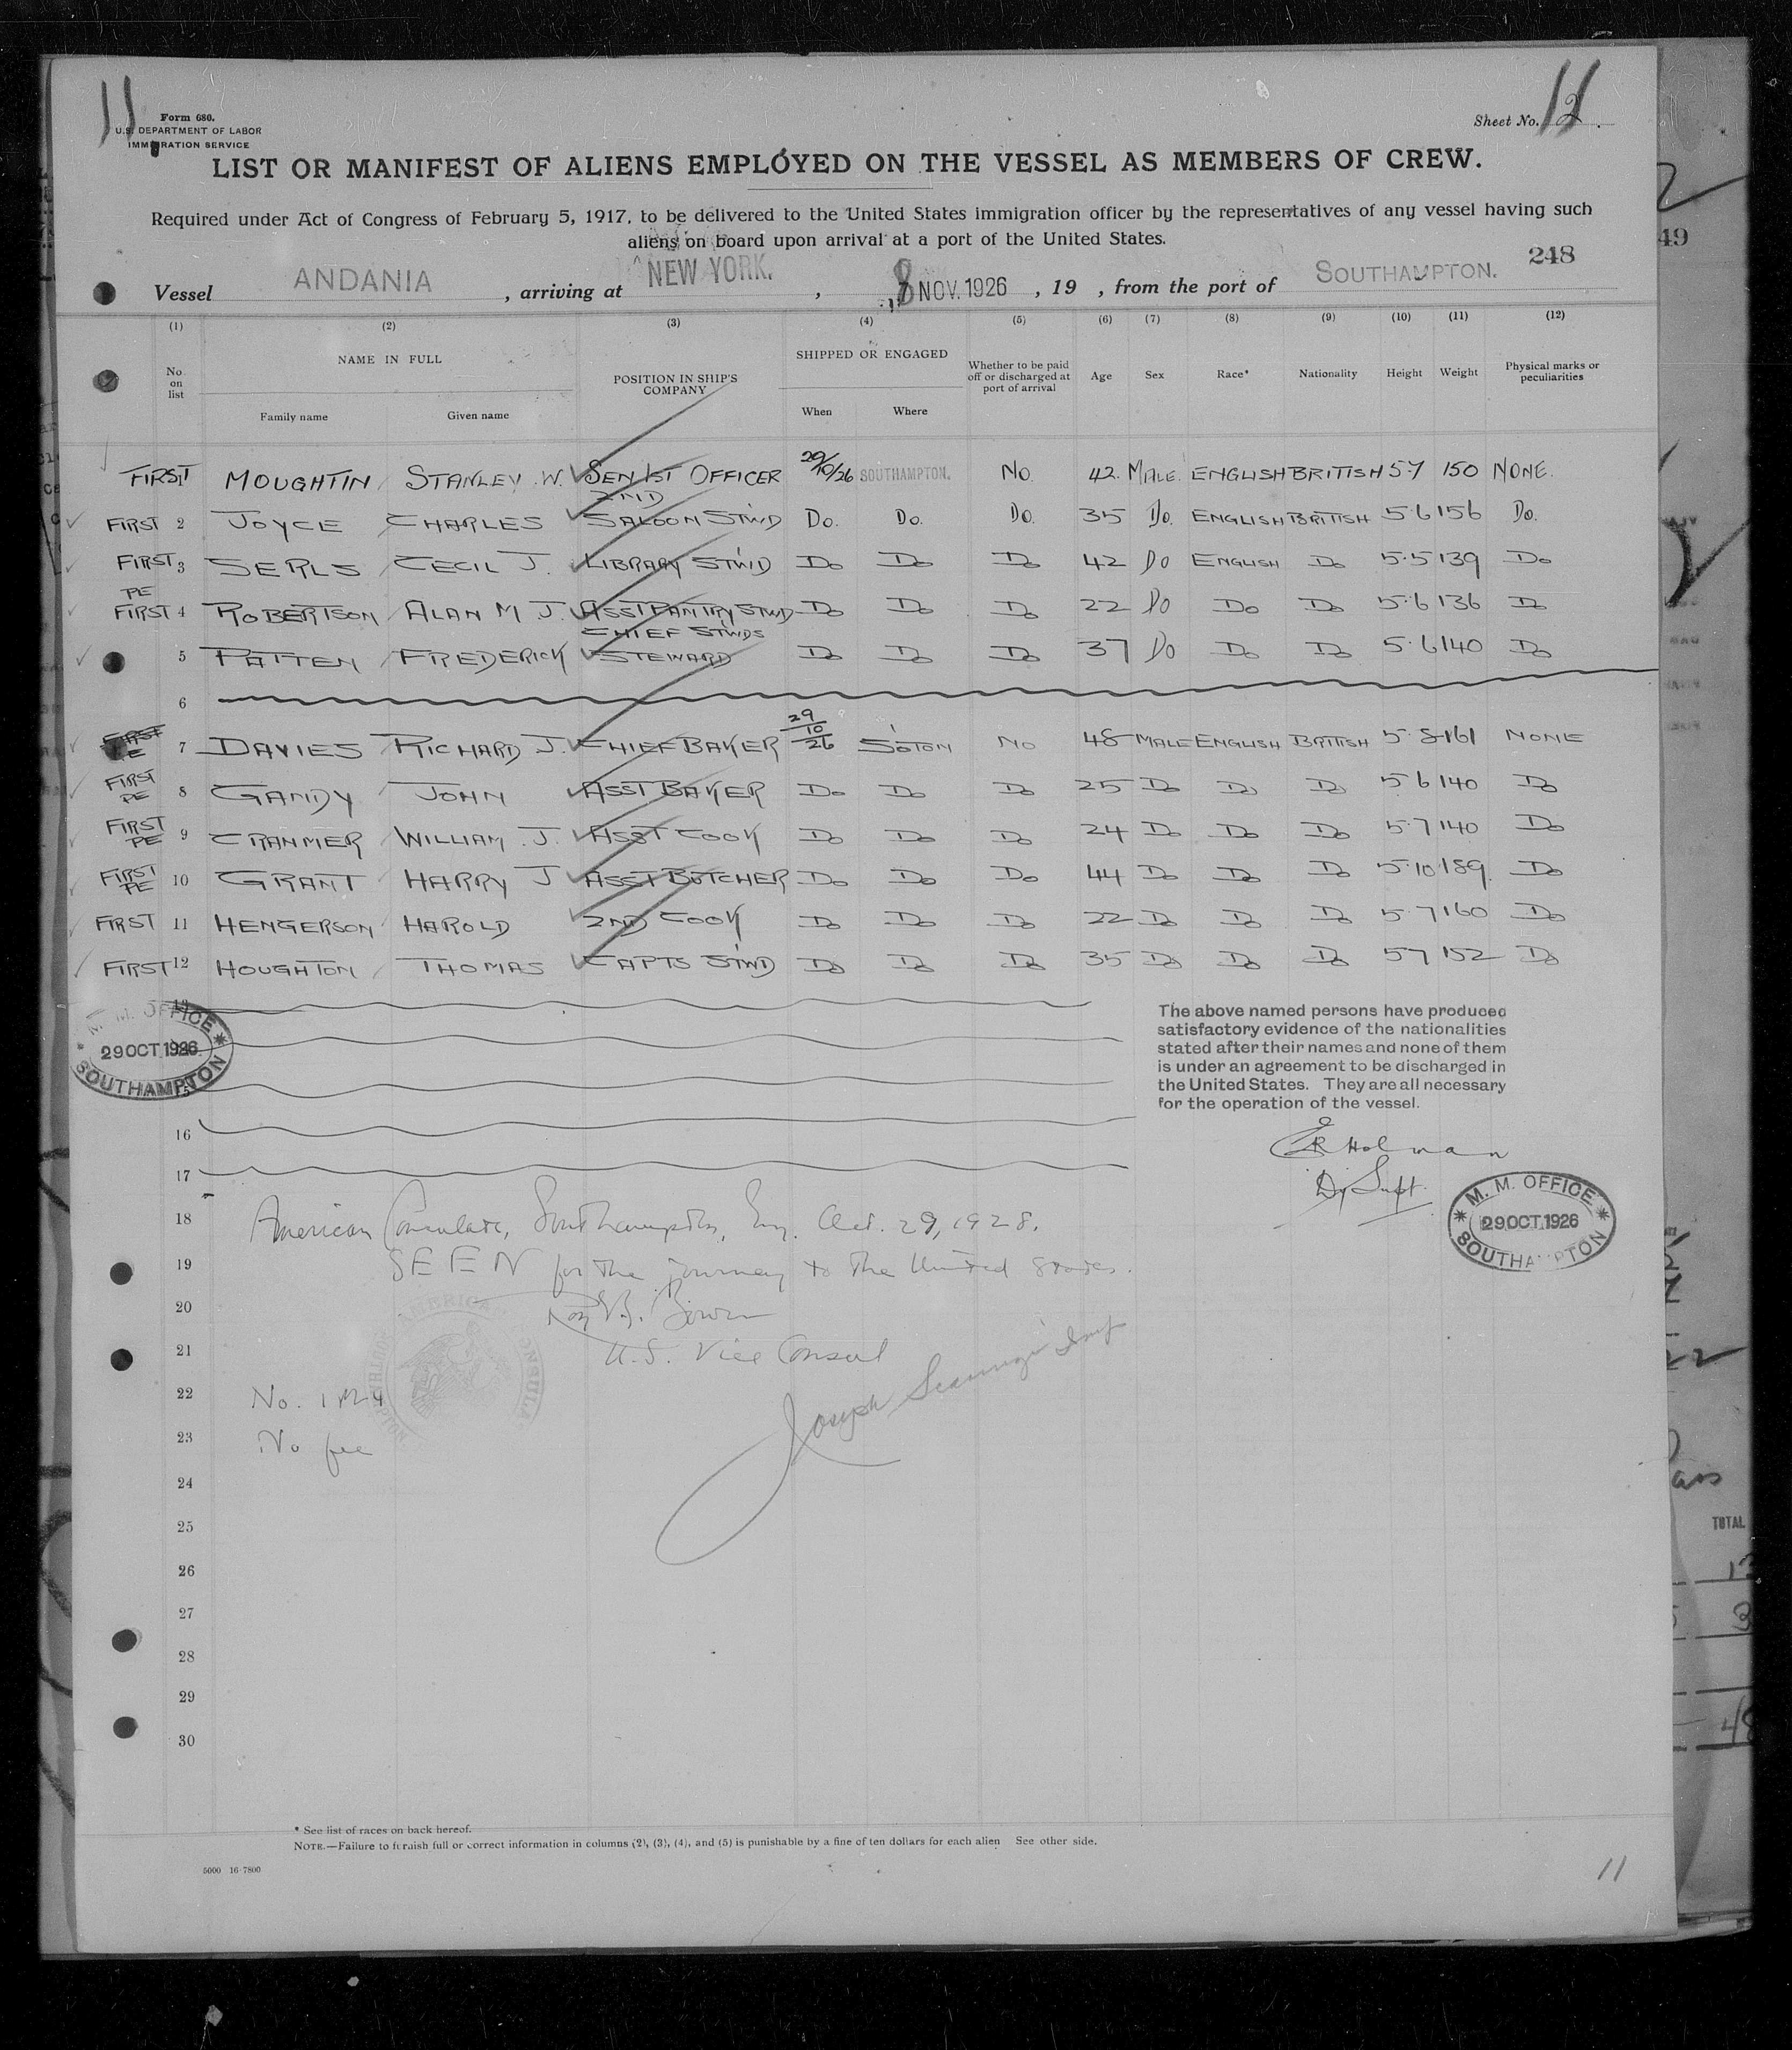 11
Form 680.
U.S. DEPARTMENT OF LABOR
IMMIGRATION SERVICE
Sheet No. 2.
11
LIST OR MANIFEST OF ALIENS EMPLOYED ON THE VESSEL AS MEMBERS OF CREW.
Required under Act of Congress of February 5, 1917, to be delivered to the United States immigration officer by the representatives of any vessel having such
aliens on board upon arrival at a port of the United States.
248
49
Vessel ANDANIA, arriving at NEW YORK., 8 NOV. 1926, 19 , from the port of SOUTHAMPTON.
(1) (2) (3) (4) (5) (6) (7) (8) (9) (10) (11) (12)
No. on list NAME IN FULL POSITION IN SHIP'S COMPANY SHIPPED OR ENGAGED Whether to be paid off or discharged at port of arrival Age Sex Race* Nationality Height Weight Physical marks or peculiarities
Family name Given name When Where
FIRST 1 MOUGHTIN STANLEY W. SEN 1ST OFFICER 29/10/26 SOUTHAMPTON. NO 42 MALE. ENGLISH BRITISH 57 150 NONE.
FIRST 2 JOYCE CHARLES 2ND SALOON STWD Do. Do. Do. 35 Do. ENGLISH BRITISH 5.6 156 Do.
FIRST 3 SERLS CECIL J. LIBRARY STWD Do Do Do 42 Do ENGLISH Do 5.5 139 Do
PE FIRST 4 ROBERTSON ALAN M J. ASST PANTRY STWD Do Do Do 22 Do Do Do 5.6 136 Do
5 PATTEN FREDERICK CHIEF STWDS STEWARD Do Do Do 37 Do Do Do 5.6 140 Do
6
FIRST PE 7 DAVIES RICHARD J. CHIEF BAKER 29/10/26 S'OTON NO 48 MALE ENGLISH BRITISH 5.8 161 NONE
FIRST PE 8 GANDY JOHN ASST BAKER Do Do Do 25 Do Do Do 5 6 140 Do
FIRST PE 9 CRANMER WILLIAM. J. ASST COOK Do Do Do 24 Do Do Do 5.7 140 Do
FIRST PE 10 GRANT HARRY J ASST BUTCHER Do Do Do 44 Do Do Do 5.10 189 Do
FIRST 11 HENGERSON HAROLD 2ND COOK Do Do Do 22 Do Do Do 5 7 160 Do
FIRST 12 HOUGHTON THOMAS CAPTS STWD Do Do Do 35 Do Do Do 57 152 Do
M. M. OFFICE
29 OCT. 1926
SOUTHAMPTON
The above named persons have produced
satisfactory evidence of the nationalities
stated after their names and none of them
is under an agreement to be discharged in
the United States. They are all necessary
for the operation of the vessel.
16
Holman
17
Dy Supt.
M. M. OFFICE
29 OCT. 1926
SOUTHAMPTON
18 American Consulate, Southampton, Eng. Oct. 29, 1928.
19 SEEN for the journey to the United States.
20
21 U.S. Vice Consul
22 No.
Joseph
23 No fee
24
25
26
27
28
29
30
TOTAL
* See list of races on back hereof.
NOTE.—Failure to furnish full or correct information in columns (2), (3), (4), and (5) is punishable by a fine of ten dollars for each alien See other side.
5000 16-7800
11